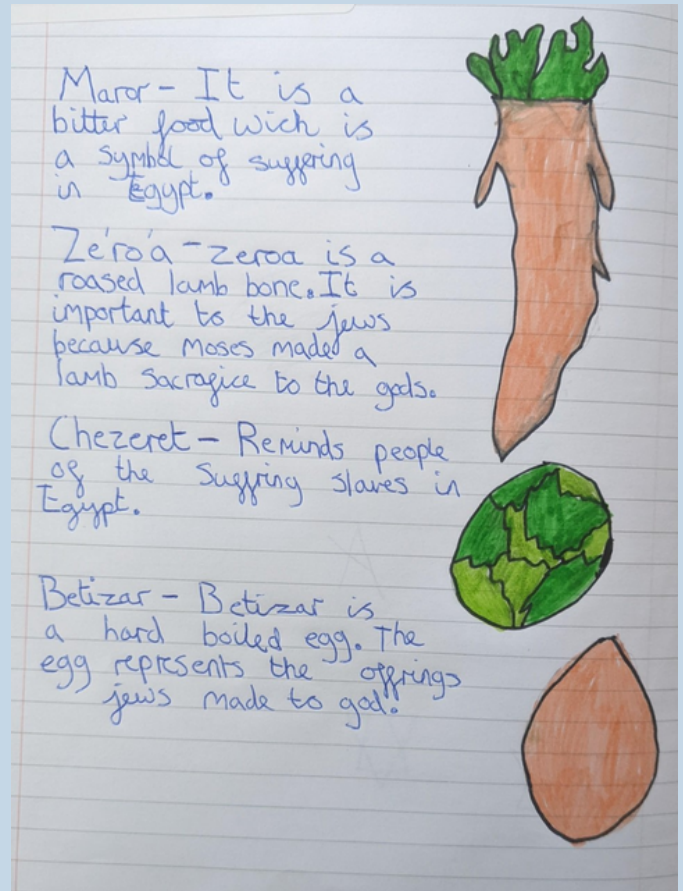 Maror - It is a
bitter food wich is
a symbol of suffering
in Egypt.
Ze'ro'a - zeroa is a
roased lamb bone. It is
important to the jews
because Moses maded a
lamb sacrafice to the gods.
Chezeret - Reminds people
of the suffring slaves in
Egypt.
Betizar - Betizar is
a hard boiled egg. The
egg represents the offrings
jews made to god.